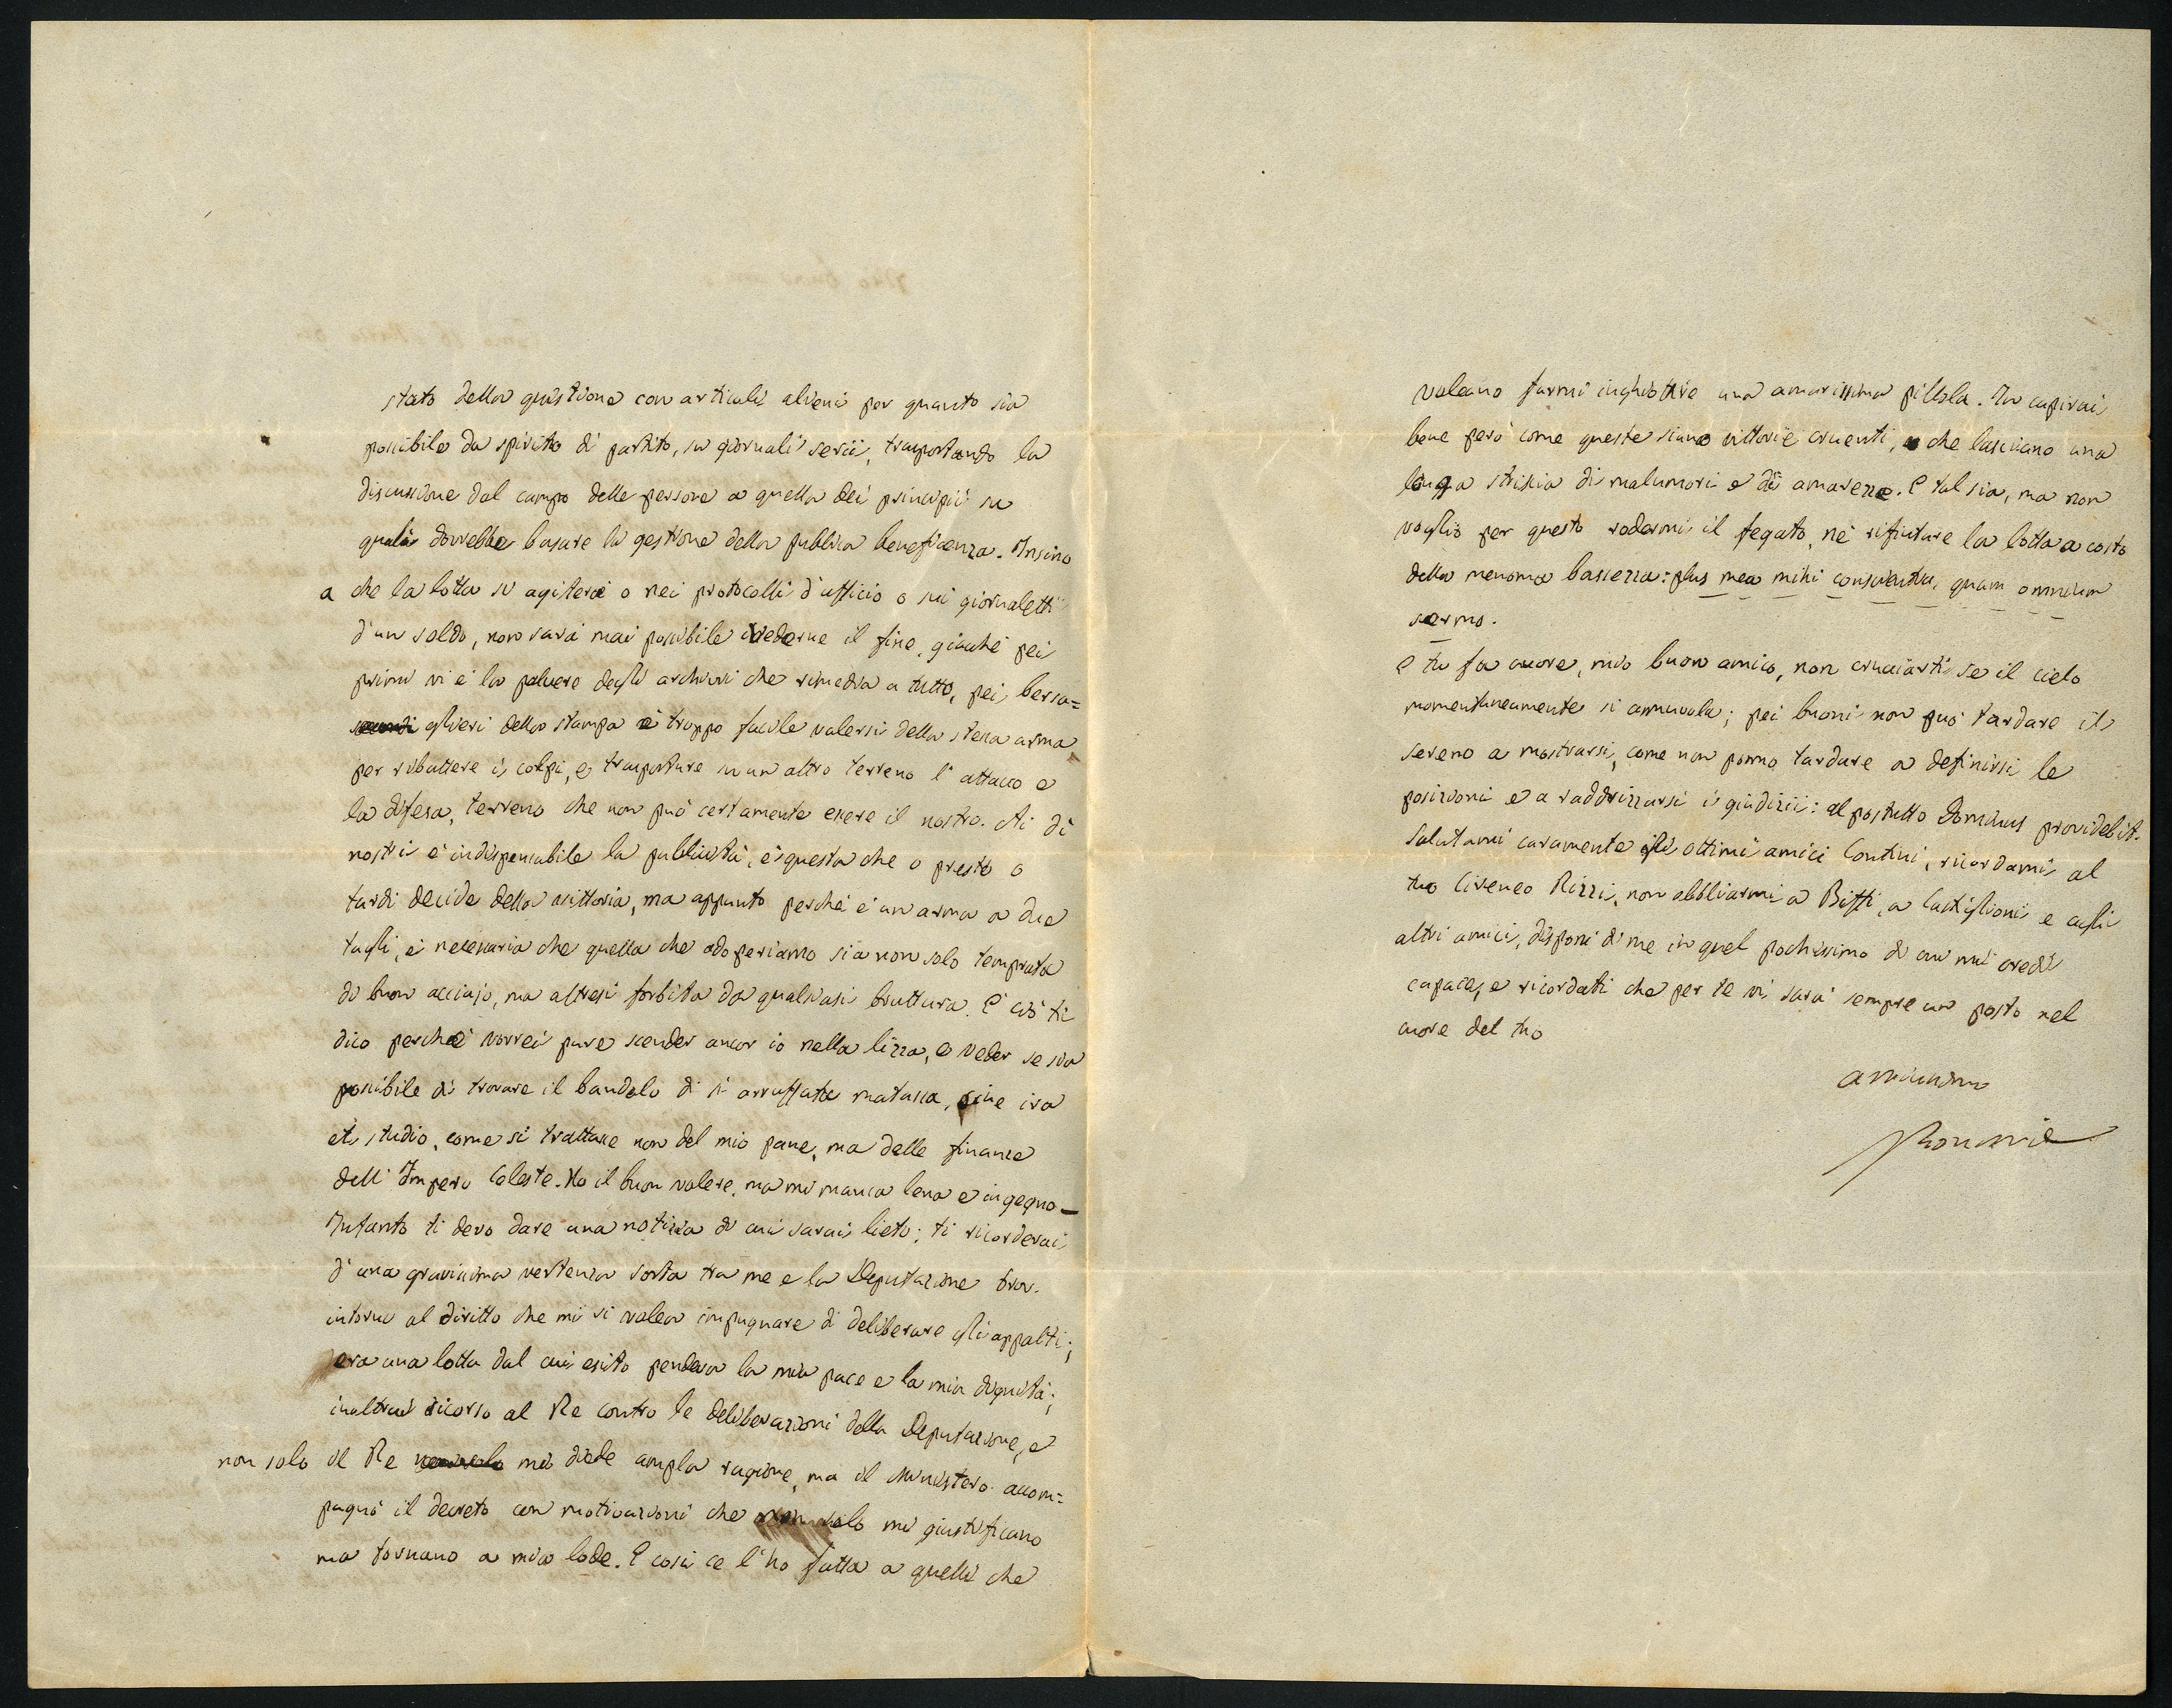 stato della questione con articoli alieni per quanto sia
possibile da spirito di partito, su giornali serii, trasportando la
discussione dal campo delle persone a quello dei principii su
quali dovrebbe basare la gestione della pubblica beneficenza. Insino
a che la lotta si agiterà o nei protocolli d'ufficio o sui giornaletti
d'un soldo, non sarà mai possibile vederne il fine, giacché pei
primi vi è la polvere degli archivi che rimedia a tutto, pei bersa=
glieri della stampa è troppo facile valersi della stessa arma
per ributtere i colpi, e trasportare su un altro terreno l'attacco e
la difesa, terreno che non può certamente essere il nostro. Ai dì
nostri è indispensabile la pubblicità, è questa che o presto o
tardi decide della vittoria, ma appunto perché è un'arma a due
tagli, è necessario che quella che adoperiamo sia non solo temprata
di buon acciajo, ma altresì forbita da qualsiasi bruttura. E ciò ti
dico perché vorrei pure scender ancor io nella lizza, e veder se sia
possibile di trovare il bandolo di sì arruffata matassa, sine ira
et studio, come si trattasse non del mio pane, ma delle finanze
dell'Impero Celeste. Ho il buon volere, ma mi manca lena e ingegno —
Intanto ti devo dare una notizia di cui sarai lieto; ti ricorderai
d'una gravissima vertenza sorta tra me e la Deputazione Prov.
intorno al diritto che mi si volea impugnare di deliberare gli appalti;
era una lotta dal cui esito pendeva la mia pace e la mia dignità;
inoltrai ricorso al Re contro le deliberazioni della Deputazione, e
non solo il Re mi diede ampla ragione, ma il Ministero accom=
pagnò il decreto con motivazioni che non solo mi giustificano
ma tornano a mia lode. E così ce l'ho fatta a quelli che
voleano farmi inghiottire una amarissima pillola. Tu capirai
bene però come queste siano vittorie cruenti, che lasciano una
lunga striscia di malumori e di amarezze. E tal sia, ma non
voglio per questo rodermi il fegato, né rifiutare la lotta a costo
della menoma bassezza: plus mea mihi conscientia, quam omnium
sermo.
E tu fa cuore, mio buon amico, non cruciarti se il cielo
momentaneamente si annuvola; pei buoni non può tardare il
sereno a mostrarsi, come non ponno tardare a definirsi le
posizioni e a raddrizzarsi i giudizii: al postutto Dominus providebit.
Salutami caramente gli ottimi amici Contini, ricordami al
tuo Cireneo Rizzi, non obbliarmi a Biffi, a Castiglioni e agli
altri amici, disponi di me in quel pochissimo di cui mi credi
capace, e ricordati che per te vi sarà sempre un posto nel
cuore del tuo
amicissimo